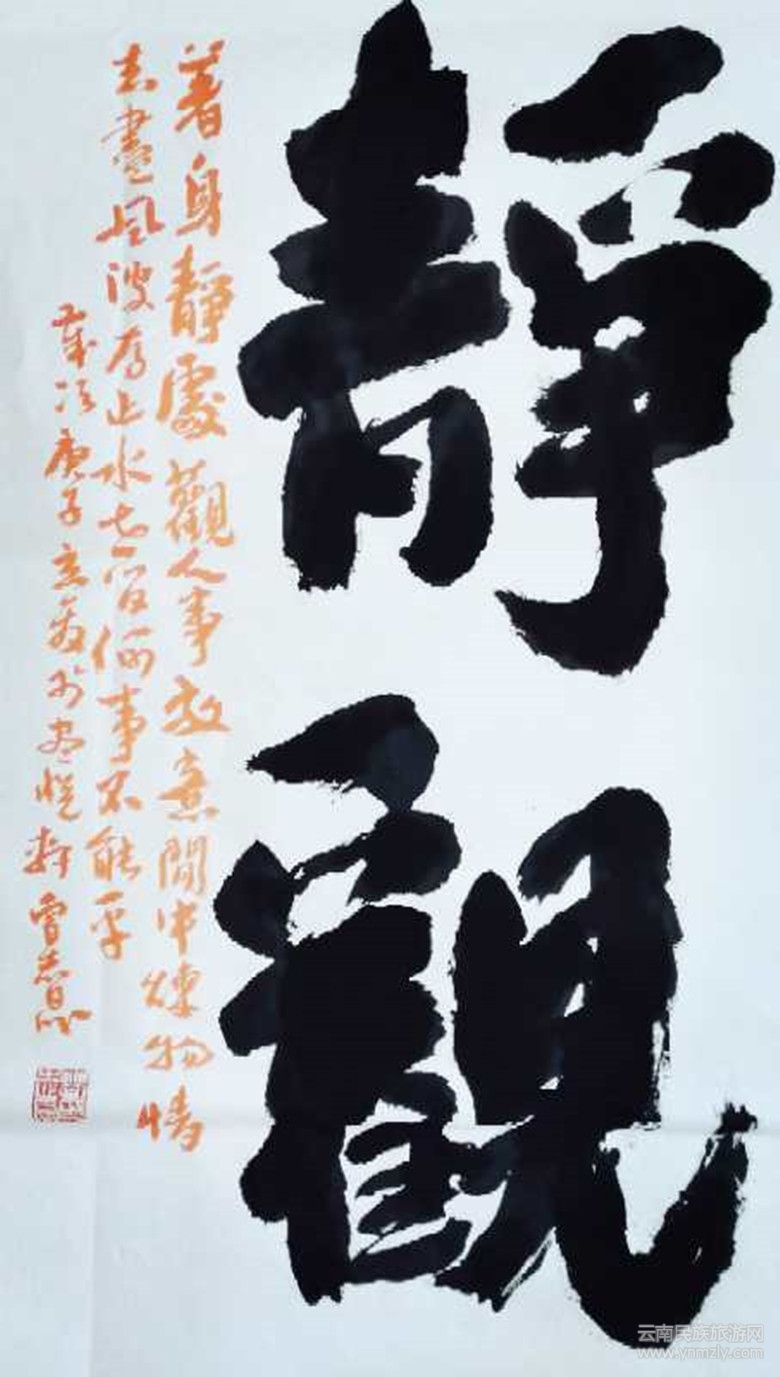 靜觀
著身靜處觀人事放意閒中煉物情
去盡風波存止水世間何事不能平
歲次庚子軒曾
云南民族旅游网
www.ynmzly.com